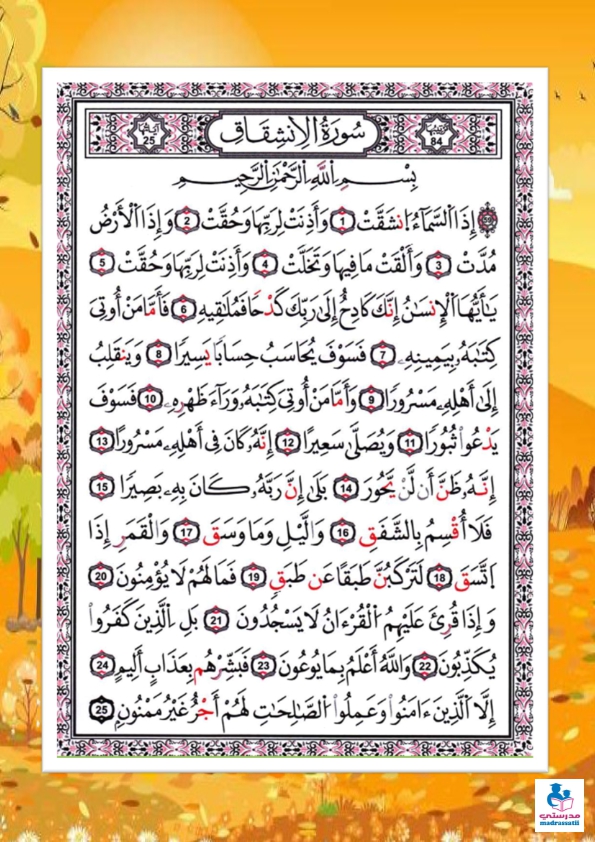 سُورَةُ الِانْشِقَاقِ
84
25
بِسْمِ اِ۬للَّهِ اِ۬لرَّحْمَٰنِ اِ۬لرَّحِيمِ
إِذَا اَ۬لسَّمَآءُ اُ۪نشَقَّتْ 1 وَأَذِنَتْ لِرَبِّهَا وَحُقَّتْ 2 وَإِذَا اَ۬لْأَرْضُ
مُدَّتْ 3 وَأَلْقَتْ مَا فِيهَا وَتَخَلَّتْ 4 وَأَذِنَتْ لِرَبِّهَا وَحُقَّتْ 5
يَٰٓأَيُّهَا اَ۬لْإِنسَٰنُ إِنَّكَ كَادِحٌ إِلَىٰ رَبِّكَ كَدْحًا فَمُلَٰقِيهِ 6 فَأَمَّا مَنْ أُوتِيَ
كِتَٰبَهُۥ بِيَمِينِهِۦ 7 فَسَوْفَ يُحَاسَبُ حِسَابًا يَسِيرًا 8 وَيَنقَلِبُ
إِلَىٰ أَهْلِهِۦ مَسْرُورًا 9 وَأَمَّا مَنْ أُوتِيَ كِتَٰبَهُۥ وَرَآءَ ظَهْرِهِۦ 10 فَسَوْفَ
يَدْعُوا۟ ثُبُورًا 11 وَيُصَلَّىٰ سَعِيرًا 12 إِنَّهُۥ كَانَ فِي أَهْلِهِۦ مَسْرُورًا 13
إِنَّهُۥ ظَنَّ أَن لَّنْ يَّحُورَ 14 بَلَىٰ إِنَّ رَبَّهُۥ كَانَ بِهِۦ بَصِيرًا 15
فَلَا أُقْسِمُ بِالشَّفَقِ 16 وَالَّيْلِ وَمَا وَسَقَ 17 وَالْقَمَرِ إِذَا
اَ۪تَّسَقَ 18 لَتَرْكَبُنَّ طَبَقًا عَن طَبَقٍ 19 فَمَا لَهُمْ لَا يُؤْمِنُونَ 20
وَإِذَا قُرِئَ عَلَيْهِمُ اُ۬لْقُرْءَانُ لَا يَسْجُدُونَ 21 بَلِ اِ۬لَّذِينَ كَفَرُوا۟
يُكَذِّبُونَ 22 وَاللَّهُ أَعْلَمُ بِمَا يُوعُونَ 23 فَبَشِّرْهُم بِعَذَابٍ أَلِيمٍ 24
إِلَّا اَ۬لَّذِينَ ءَامَنُوا۟ وَعَمِلُوا۟ اُ۬لصَّٰلِحَٰتِ لَهُمْ أَجْرٌ غَيْرُ مَمْنُونٍ 25
مدرستي
madrassatii